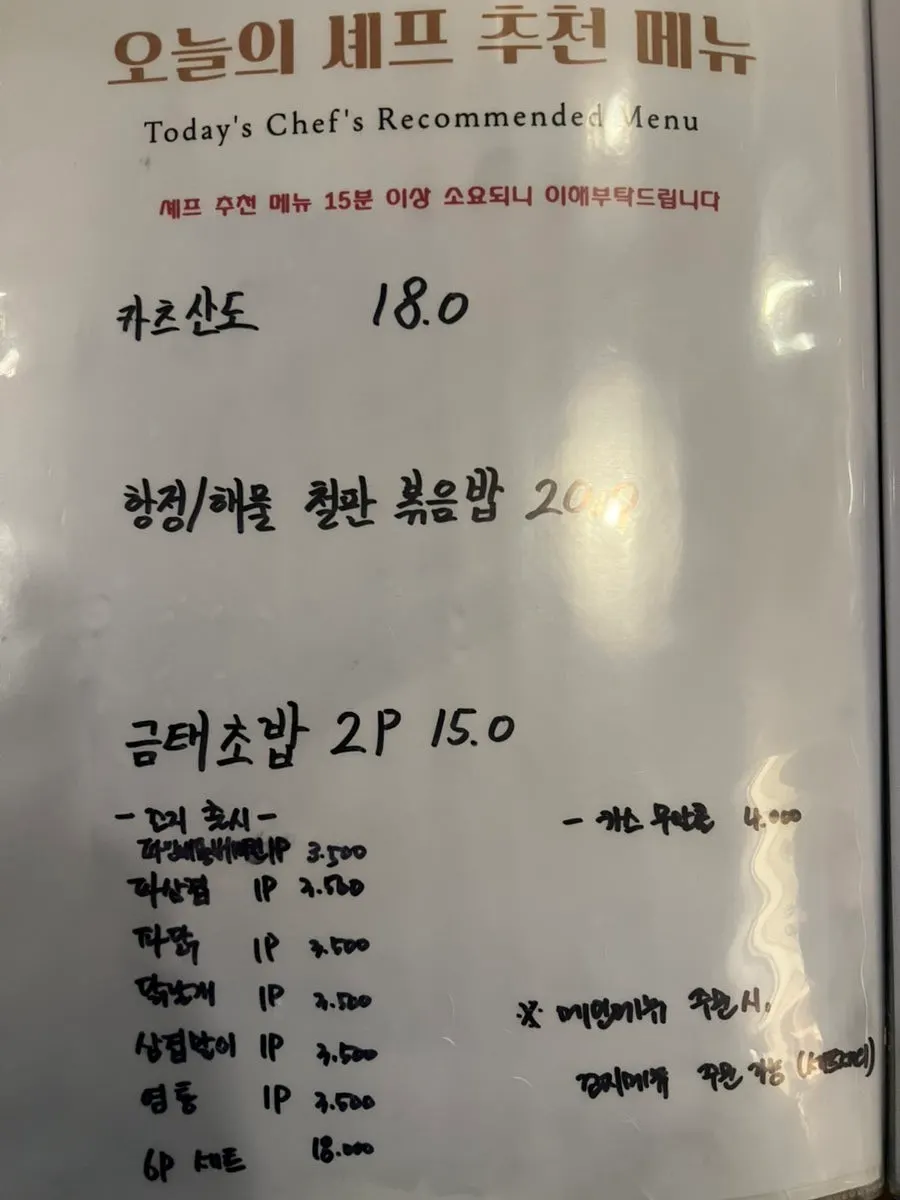 오늘의 셰프 추천 메뉴
Today's Chef's Recommended Menu
셰프 추천 메뉴 15분 이상 소요되니 이해부탁드립니다
카츠산도 18.0
항정/해물 철판 볶음밥 20.0
금태초밥 2P 15.0
- 꼬지 출시 -
1P 3.500
파삼겹 1P 3.500
파닭 1P 3.500
닭날개 1P 3.500
삼겹말이 1P 3.500
염통 1P 3.500
6P 세트 18.000
- 카스 무알콜 4.000
※ 메인메뉴 주문시,
꼬지메뉴 주문 가능